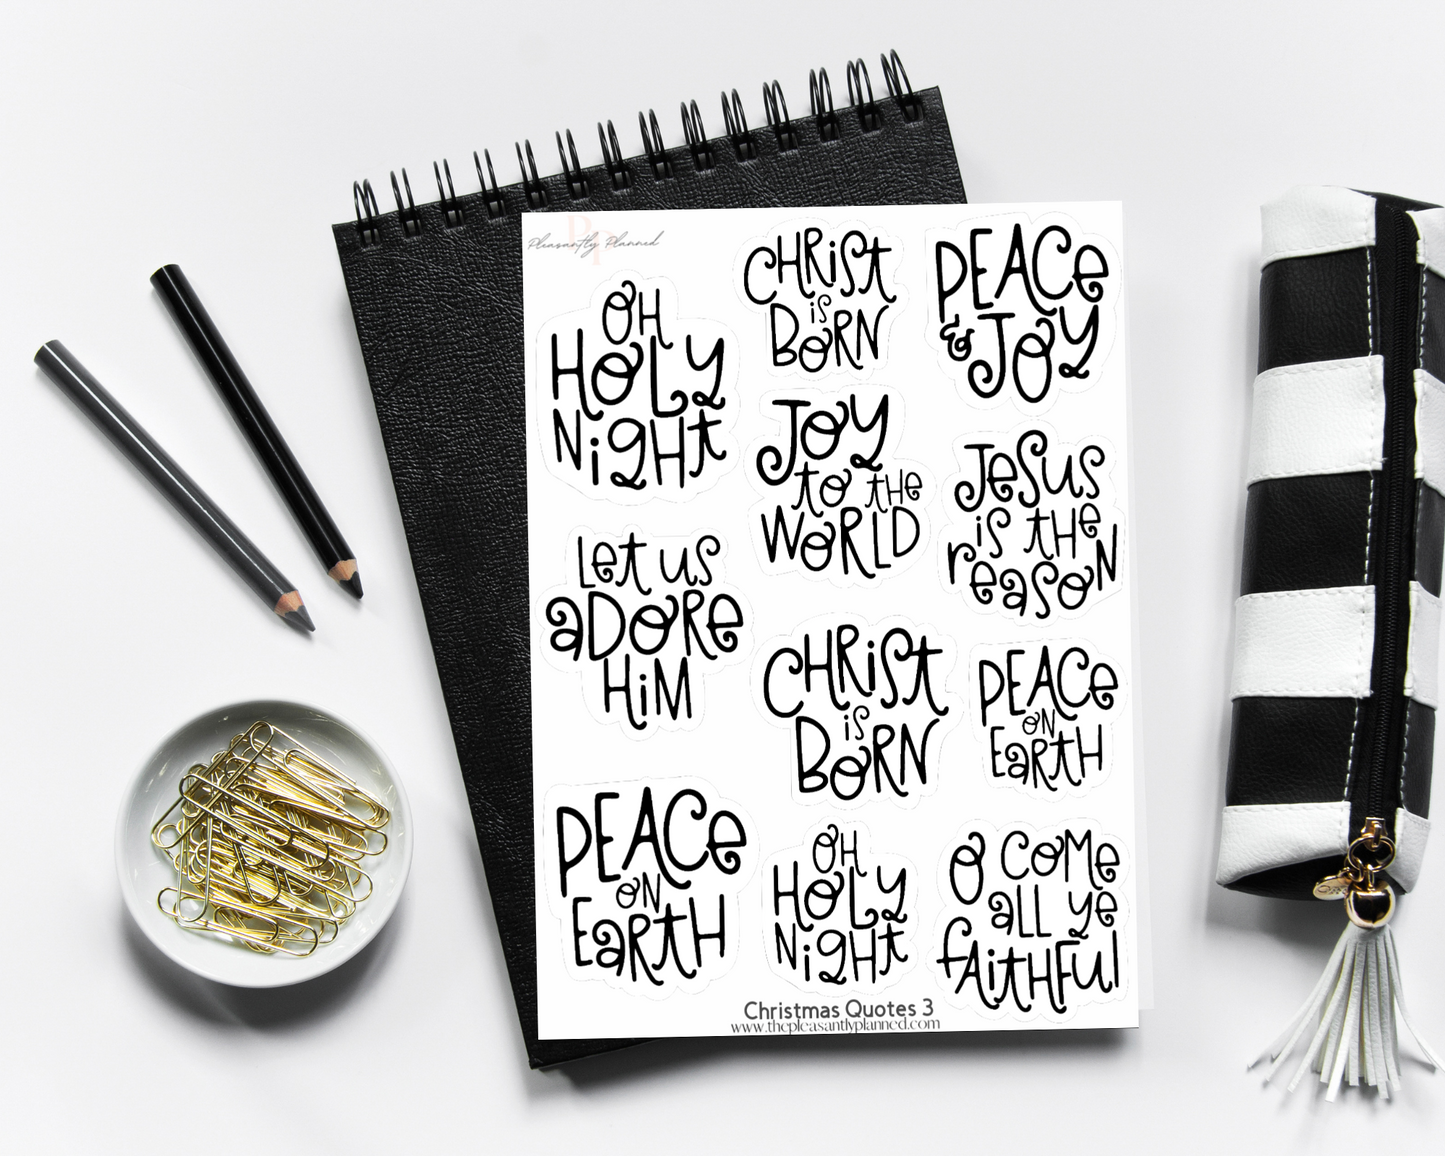 Pleasantly Planned
OH
HOLY
NiGHT
CHRiST
iS
BORN
PEACe
& JOY
JOY
to tHe
WORLD
JeSuS
iS tHe
reasoN
Let us
aDORe
HiM
CHRiST
iS
BORN
PEACe
ON
EaRtH
PEACe
ON
EaRtH
OH
HOLY
NiGHT
O COMe
aLL ye
fAitHFul
Christmas Quotes 3
www.thepleasantlyplanned.com